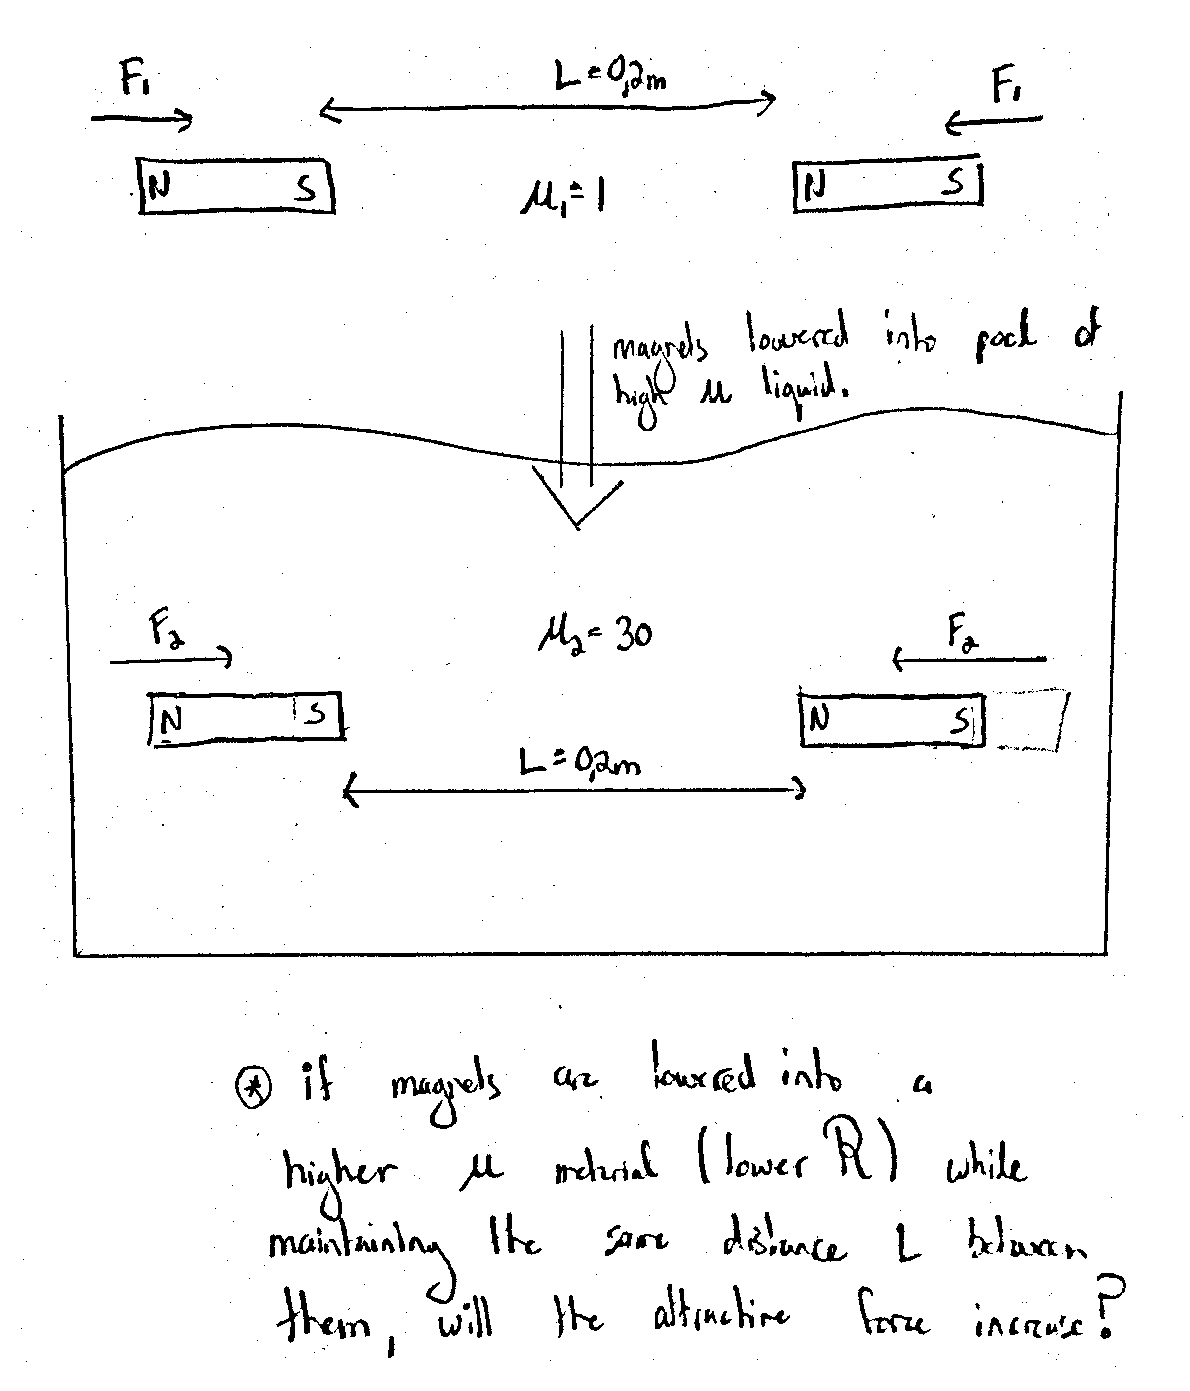 F₁
L = 0,2m
F₁
N S
μ₁ = 1
N S
magnets lowered into pool of
high μ liquid.
F₂
μ₂ = 30
F₂
N S
N S
L = 0,2m
* if magnets are lowered into a
higher μ material (lower R) while
maintaining the same distance L between
them, will the attractive force increase?